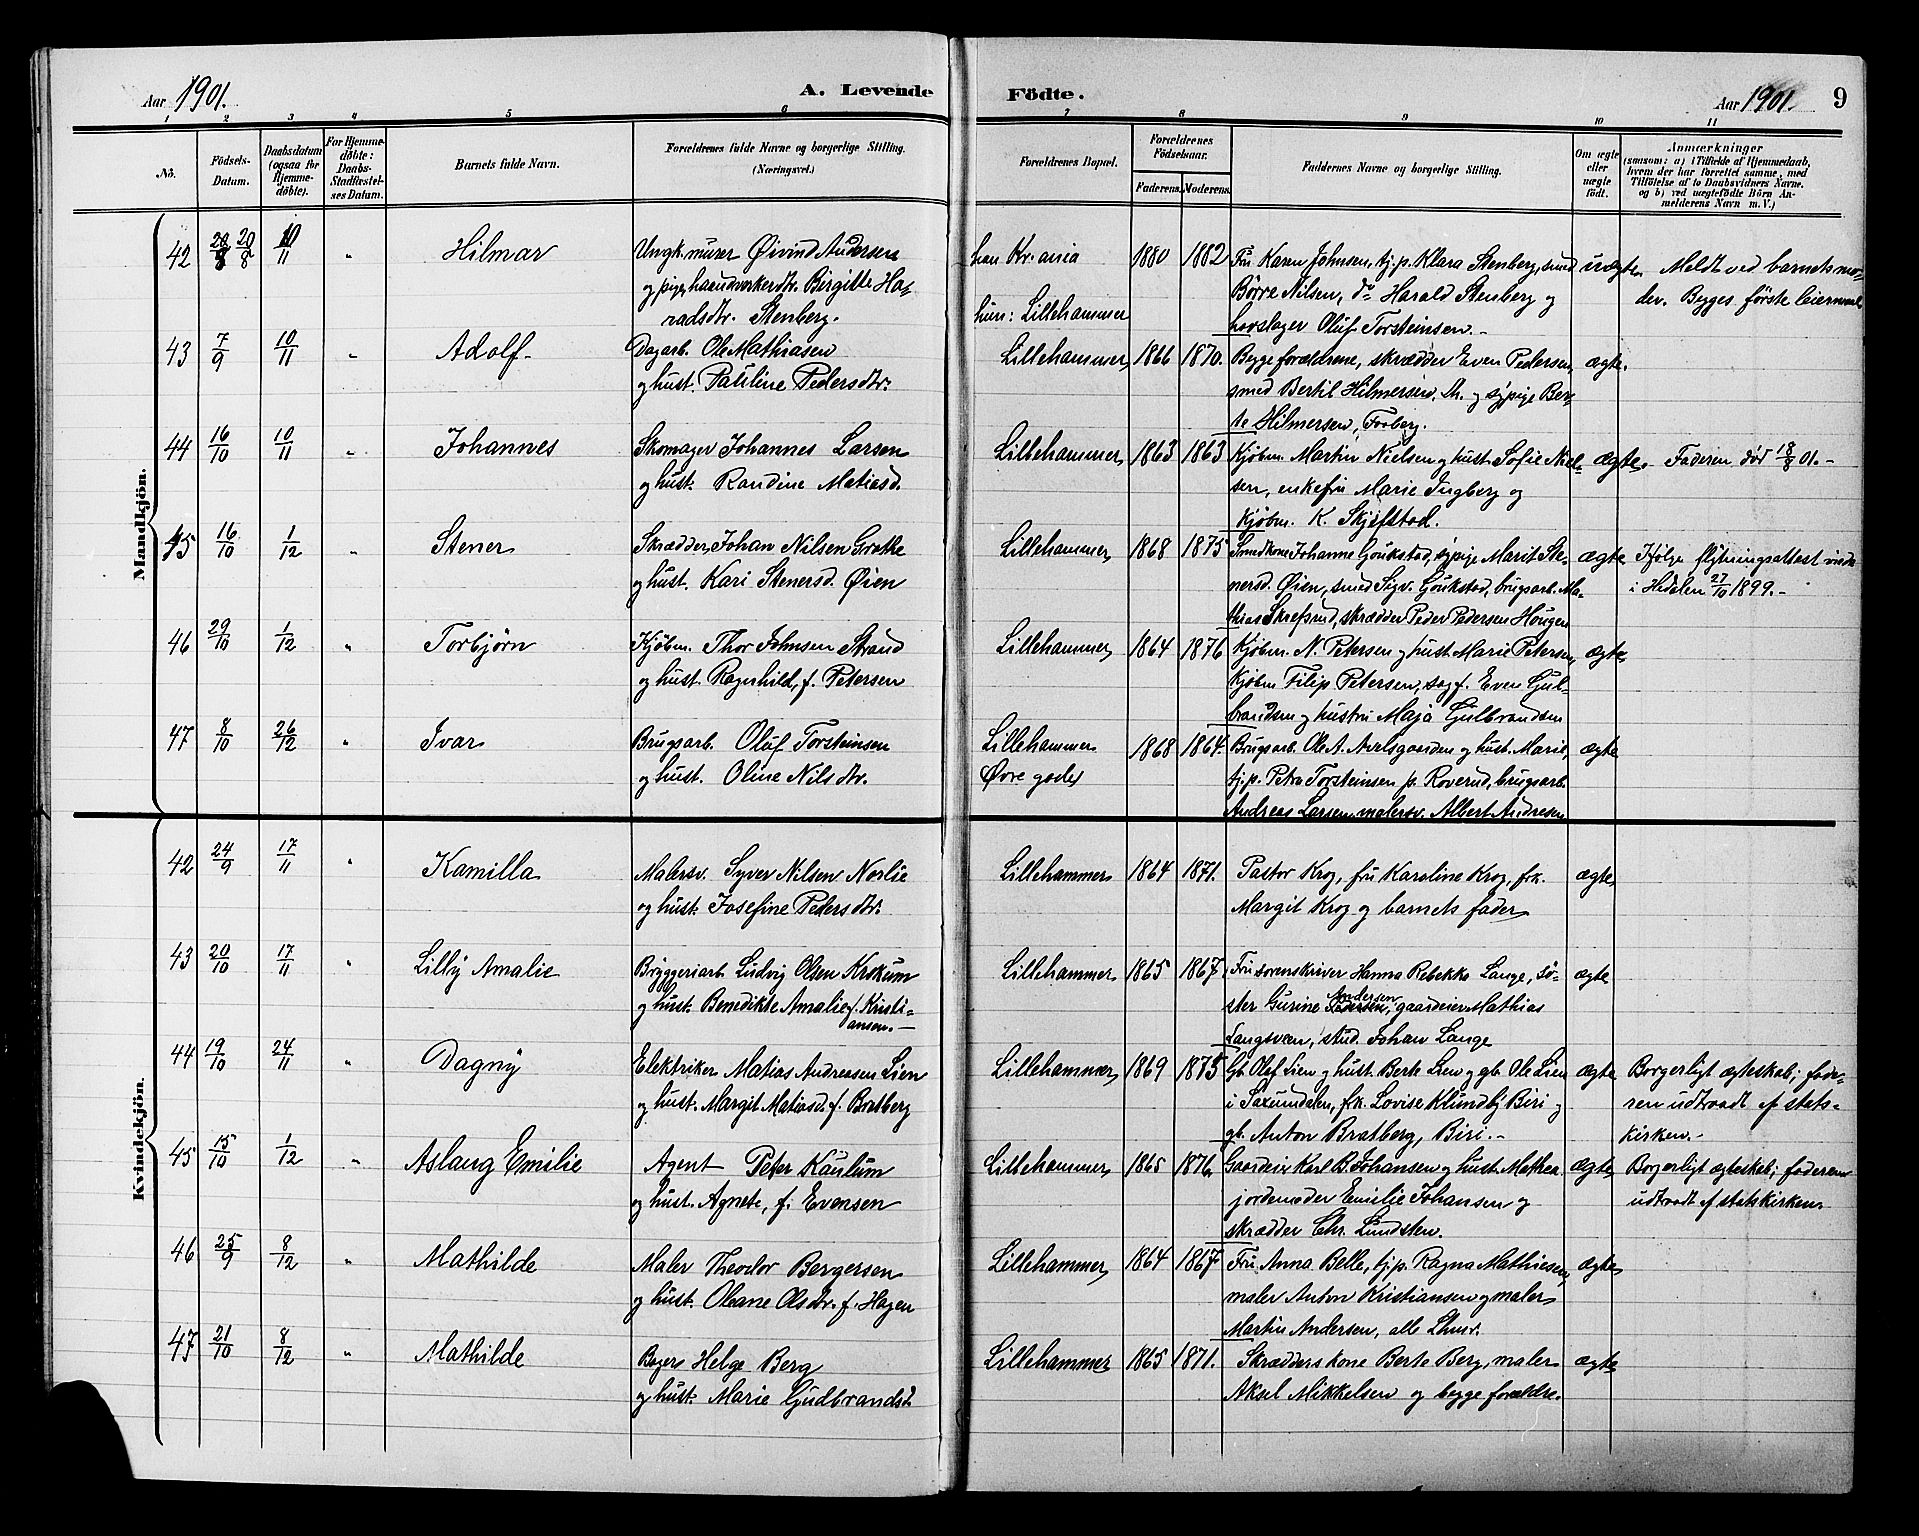 Aar 1901. A. Levende Födte. Aar 1901. 9
1 2 3 4 5 6 7 8 9 10 11
No. Födsels-Datum. Daabsdatum (ogsaa for Hjemme-döbte). For Hjemme-döbte: Daabs-Stadfæstel-ses Datum. Barnets fulde Navn. Forældrenes fulde Navne og borgerlige Stilling. (Næringsvei.) Forældrenes Bopæl. Forældrenes Födselsaar. Faderens. Moderens. Faddernes Navne og borgerlige Stilling. Om ægte eller uægte födt. Anmærkninger
(saasom: a) i Tilfælde af Hjemmedaab,
hvem der har forrettet samme, med
Tilföielse af to Daabsvidners Navne,
og b) ved uægtefödte Börn An-
melderens Navn m. V.)
Mandkjön.
42 20/8 10/11 " Hilmar Ungk. murer Øivind Andersen han Kr.ania 1880 1882 Fru Karen Johnsen, tj.p. Klara Stenberg, smed uægte. Meldt ved barnets mo-
og pige, haandværkerdtr. Birgitte Ha- Börre Nilsen, do Harald Stenberg og der. Begges förste leiermaal
radsdtr. Stenberg. hun: Lillehammer hovslager Oluf Torsteinsen. -
43 7/9 10/11 " Adolf Dagarb. Ole Mathiasen Lillehammer 1866 1870. Begge forældrene, skrædder Even Pedersen, ægte.
og hust. Pauline Pedersdtr. smed Bertil Hilmersen, og sypige Ber-
te Hilmersen, Forberg.
44 16/10 10/11 " Johannes Skomager Johannes Larsen Lillehammer 1863 1863 Kjöbm. Martin Nielsen og hust. Sofie Niel- ægte. Faderen dör 18/8 01. -
og hust. Randine Matiasd. sen, enkefru Marie Ingberg og
Kjöbm. K. Skjefstad.
45 16/10 1/12 " Stener Skrædder Johan Nilsen Grothe Lillehammer 1868 1875 Smedkone Johanne Goukstad, sypige Marit Ste- ægte Ifølge flytningsattest viede
og hust. Kari Stenersd. Øien nersd. Øien, smed Sigv. Goukstad, brugsarb. Ma- i Hedalen 27/10 1899. -
thias Skrefsrud, skrædder Peder Pedersen Hougen
46 29/10 1/12 " Torbjörn Kjöbm. Thor Johnsen Strand Lillehammer 1864 1876 Kjöbm. N. Petersen og hust. Marie Petersen, ægte
og hust. Ragnhild, f. Petersen Kjöbm Filip Petersen, sagf. Even Gul-
brandsen og hustru Maja Gulbrandsen
47 8/10 26/12 " Ivar Brugsarb. Oluf Torsteinsen Lillehammer 1868 1864. Brugsarb. Ole A. Avelsgaarden og hust. Marie, ægte
og hust. Oline Nilsdtr. Øvre gade tj.p. Petra Torsteinsen p. Roverud, brugsarb.
Andreas Larsen, malersv. Albert Andresen
Kvindekjön.
42 24/9 17/11 " Kamilla Malersv. Syver Nilsen Norlie Lillehammer 1864 1871. Pastor Krog, fru Karoline Krog, frk. ægte
og hust. Josefine Pedersdtr. Margit Krog og barnets fader
43 20/10 17/11 " Lilly Amalie Bryggeriarb Ludvig Olsen Krokum Lillehammer 1865 1867. Fru sorenskriver Hanna Rebekka Lange, sö- ægte
og hust. Benedikte Amalie f. Kristi-ansen. - ster Gurine Andersen, gaardeier Mathias
Langsveen, stud. Johan Lange
44 19/10 24/11 " Dagny Elektriker Matias Andreasen Lien Lillehammer 1869 1875 Gb. Olaf Lien og hust. Berte Lien og gb. Ole Lien ægte Borgerligt ægteskab; fade-
og hust. Margit Matiasd. f. Bratberg i Saxumdalen, frk. Lovise Klundby Biri og ren udtraadt af stats-
gb. Anton Bratberg, Biri. - kirken. -
45 15/10 1/12 " Aslaug Emilie Agent Peter Kaulum Lillehammer 1865 1876 Gaardeier Karl B. Johansen og hust. Mathea ægte Borgerligt ægteskab; faderen
og hust. Agnete, f. Evensen jordemoder Emilie Johansen og udtraadt af statskirken.
skrædder Chr. Lundsten.
46 25/9 8/12 " Mathilde Maler Theodor Bergersen Lillehammer 1864 1867 Fru Anna Belle, tj.p. Ragna Mathiesen, ægte
og hust. Oleane Olsdtr. f. Hagen maler Anton Kristiansen og maler
Martin Andersen, alle Lhmr.
47 21/10 8/12 " Mathilde Bager Helge Berg Lillehammer 1865 1871. Skrædderskone Berte Berg, maler ægte
og hust. Marie Gudbrandsd. Aksel Mikkelsen og begge forældre.